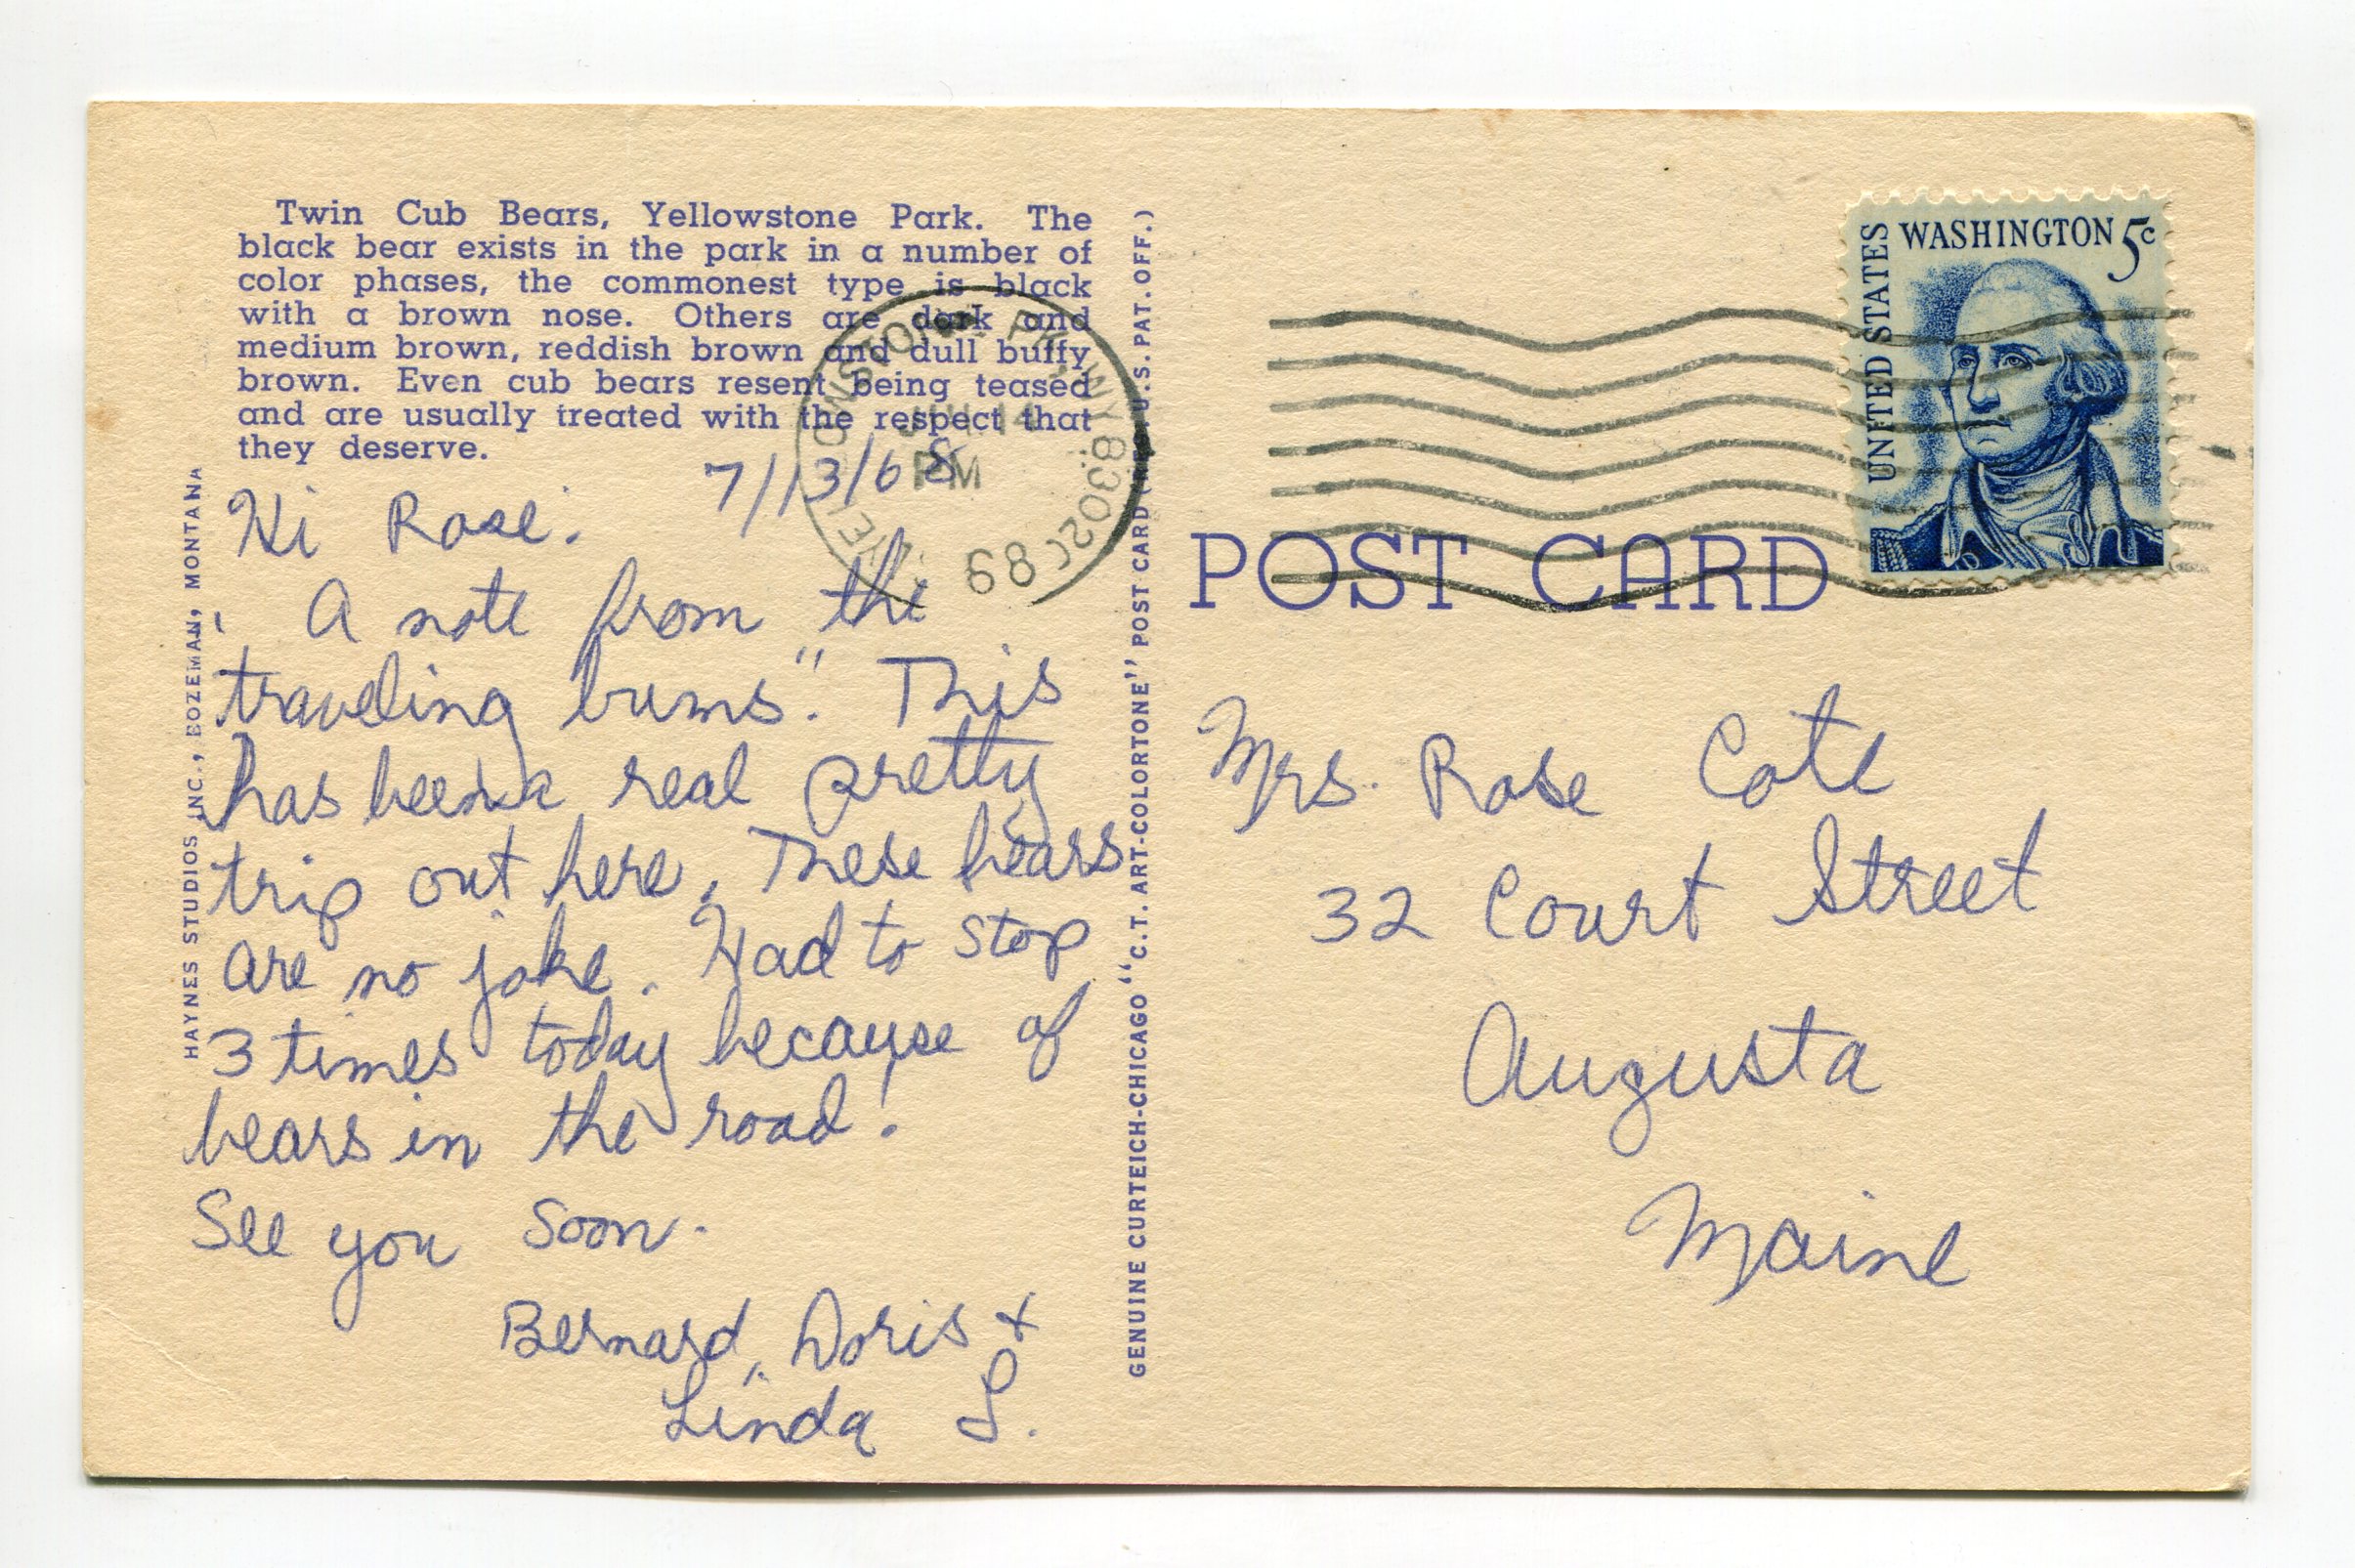 Twin Cub Bears, Yellowstone Park. The
black bear exists in the park in a number of
color phases, the commonest type is black
with a brown nose. Others are dark and
medium brown, reddish brown and dull buffy
brown. Even cub bears resent being teased
and are usually treated with the respect that
they deserve.
HAYNES STUDIOS INC., BOZEMAN, MONTANA
7/13/68
Hi Rose.
" A note from the
traveling bums". This
has been a real pretty
trip out here. These bears
are no joke. Had to stop
3 times today because of
bears in the road!
See you soon.
Bernard, Doris +
Linda L.
GENUINE CURTEICH-CHICAGO "C.T. ART-COLORTONE" POST CARD (REG. U.S. PAT. OFF.)
YELLOWSTONE PK., WY 83020
14
PM
UNITED STATES
WASHINGTON 5c
POST CARD
Mrs. Rose Cote
32 Court Street
Augusta
Maine